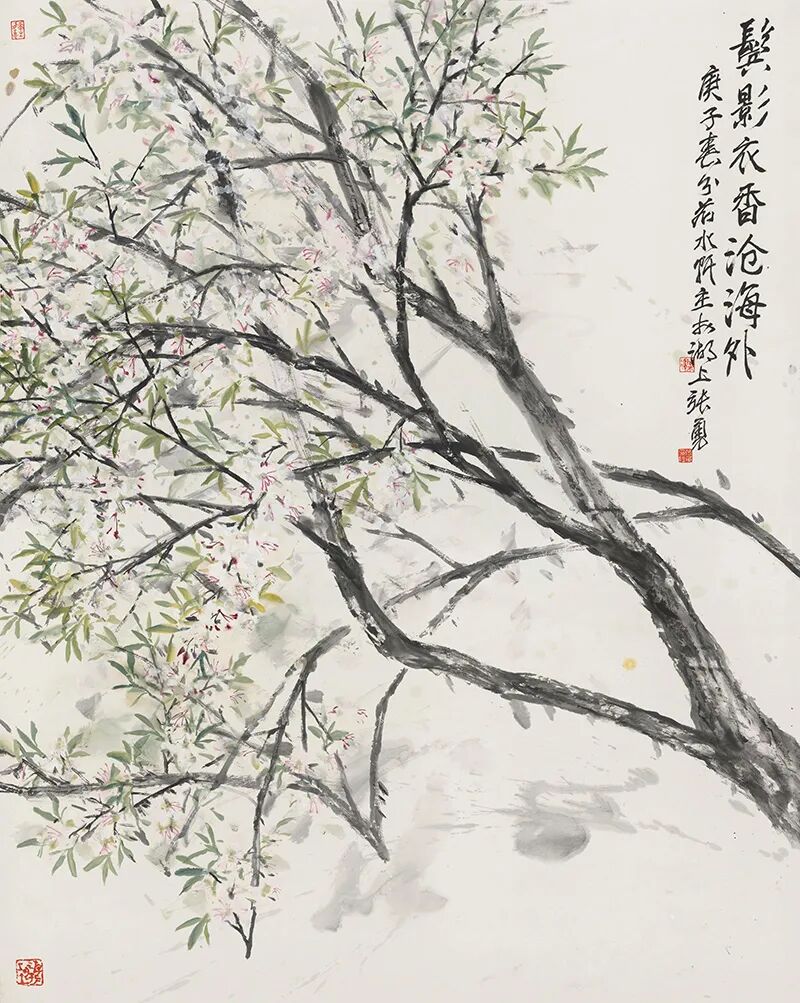 鬓影衣香沧海外
庚子春分若水轩主于湖上张勇